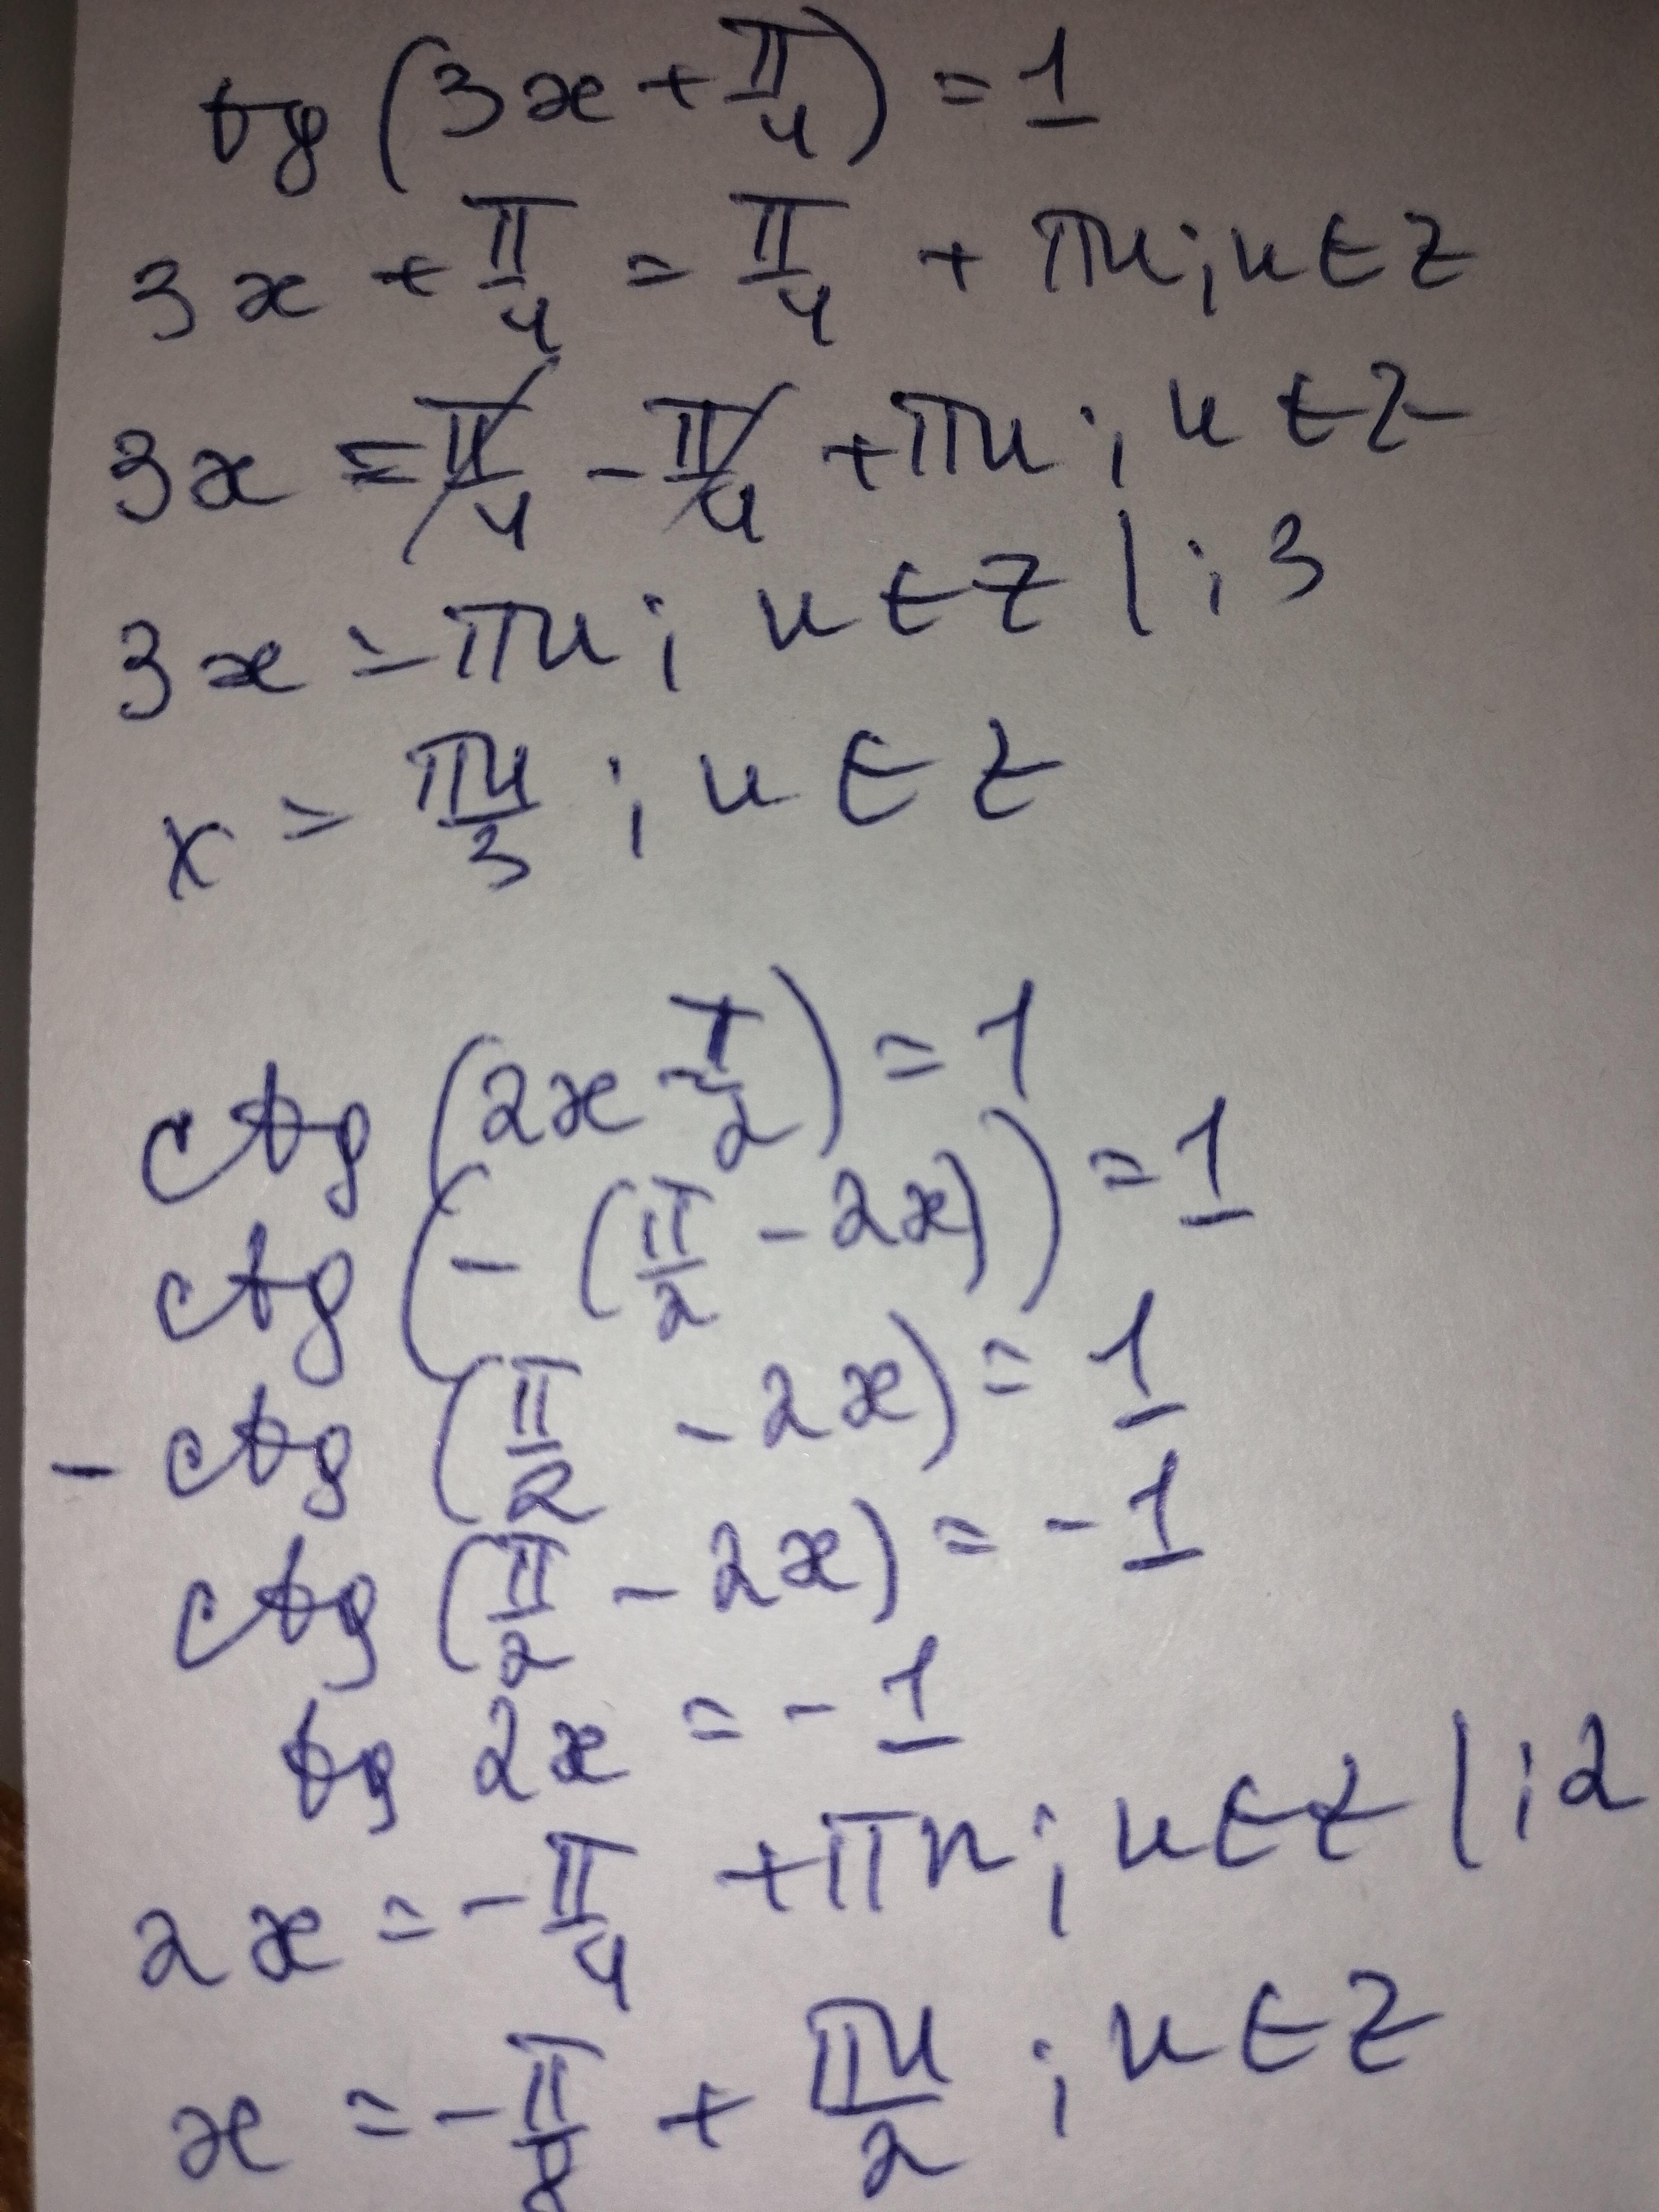 tg (3x + π/4) = 1
3x + π/4 = π/4 + πn; n ∈ Z
3x = π/4 - π/4 + πn; n ∈ Z
3x = πn; n ∈ Z | : 3
x = πn/3; n ∈ Z
ctg (2x - π/2) = 1
ctg (- (π/2 - 2x)) = 1
- ctg (π/2 - 2x) = 1
ctg (π/2 - 2x) = - 1
tg 2x = - 1
2x = - π/4 + πn; n ∈ Z | : 2
x = - π/8 + πn/2; n ∈ Z